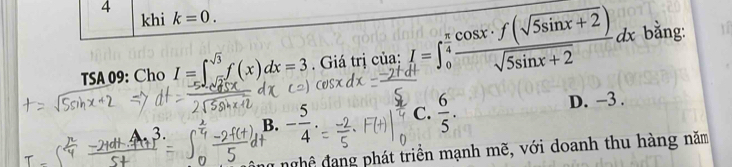 4
khi k = 0.
TSA 09: Cho I = ∫_{√2}^{√3} f(x) dx = 3. Giá trị của: I = ∫_0^{π/4} cosx · f(√(5sinx + 2)) / √(5sinx + 2) dx bằng:
t = √(5sinx+2) => dt = 5·cosx / 2√(5sinx+2) dx (=) cosx dx = -2t dt / 5
A. 3. B. -5/4. C. 6/5. D. -3.
I = ∫^{π/4} -2t dt · f(t) / 5t = ∫_0^{π/4} -2f(t) / 5 dt = -2/5 · F(t) |_0
nghệ đang phát triển mạnh mẽ, với doanh thu hàng năm